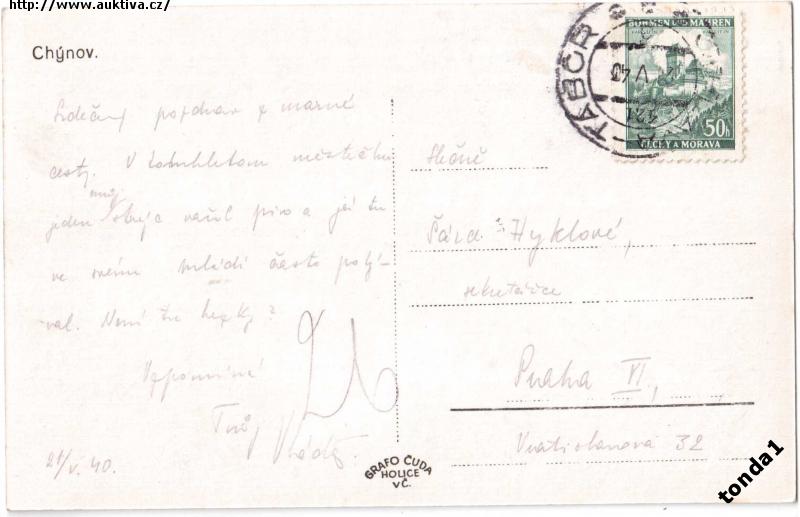 http://www.auktiva.cz/
Chýnov.
Srdečný pozdrav z marné
cesty. V tomhletom městečku
můj
jeden strýc vařil pivo a já tu
ve svém mládí často pobý-
val. Není tu hezky?
Vzpomíná
Tvůj
21/V. 40.
Slečně
Hyklové,
sekretářce
Praha VI,
Vratislavova 32
GRAFO ČUDA
HOLICE
VČ.
BÖHMEN UND MÄHREN
50h
ČECHY A MORAVA
TÁBOR
V 40
tonda1